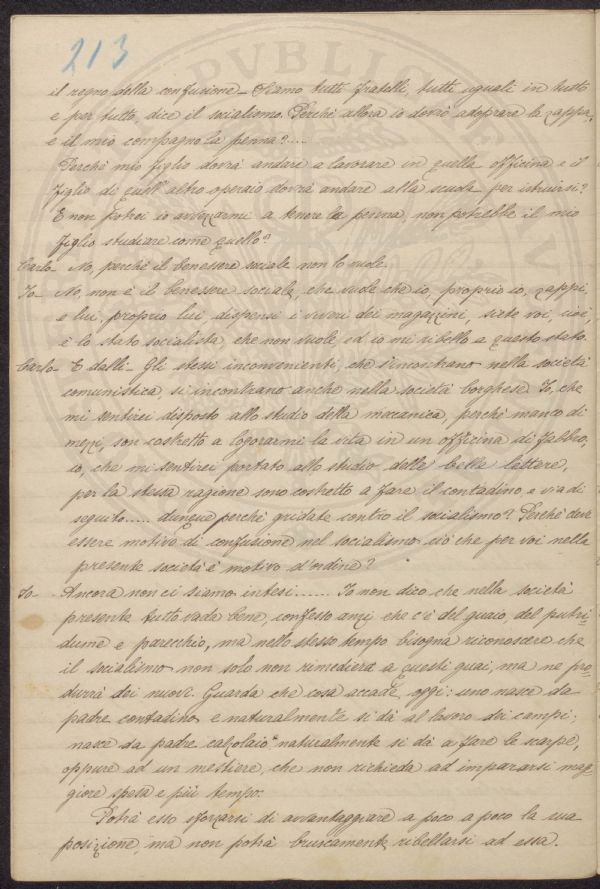 213
PVBLICHE
il regno della confusione_ Siamo tutti fratelli, tutti uguali in tutto
e per tutto, dice il socialismo. Perchè allora io dovrò adoprare la zappa,
e il mio compagno la penna?....
Perchè mio figlio dovrà andare a lavorare in quella officina e il
figlio di quell'altro operaio dovrà andare alla scuola per istruirsi?
E non potrei io avvezzarmi a tenere la penna, non potrebbe il mio
figlio studiare come quello?
Carlo_ No, perchè il benessere sociale non lo vuole.
Io_ No, non è il benessere sociale, che vuole che io, proprio io, zappi,
e lui, proprio lui dispensi i viveri dei magazzini, siete voi, cioè,
è lo stato socialista, che non vuole ed io mi ribello a questo stato.
Carlo_ E dalli_ Gli stessi inconvenienti, che s'incontrano nella società
comunistica, si incontrano anche nella società borghese. Io, che
mi sentirei disposto allo studio della meccanica, perchè manco di
mezzi, son costretto a logorarmi la vita in un officina di fabbro,
io, che mi sentirei portato allo studio delle belle lettere,
per la stessa ragione sono costretto a fare il contadino, e via di
seguito..... dunque perchè gridate contro il socialismo? Perchè deve
essere motivo di confusione nel socialismo ciò che per voi nella
presente società è motivo d'ordine?
Io_ Ancora non ci siamo intesi....... Io non dico che nella società
presente tutto vada bene, confesso anzi che c'è del guaio, del putri
dume e parecchio, ma nello stesso tempo bisogna riconoscere che
il socialismo non solo non rimedierà a questi guai, ma ne pro
durrà dei nuovi. Guarda che cosa accade oggi: uno nasce da
padre contadino e naturalmente si dà al lavoro dei campi;
nasce da padre calzolaio e naturalmente si dà a fare le scarpe,
oppure ad un mestiere, che non richieda ad impararsi mag
giore spesa e più tempo:
Potrà esso sforzarsi di avvantaggiare a poco a poco la sua
posizione, ma non potrà bruscamente ribellarsi ad essa.